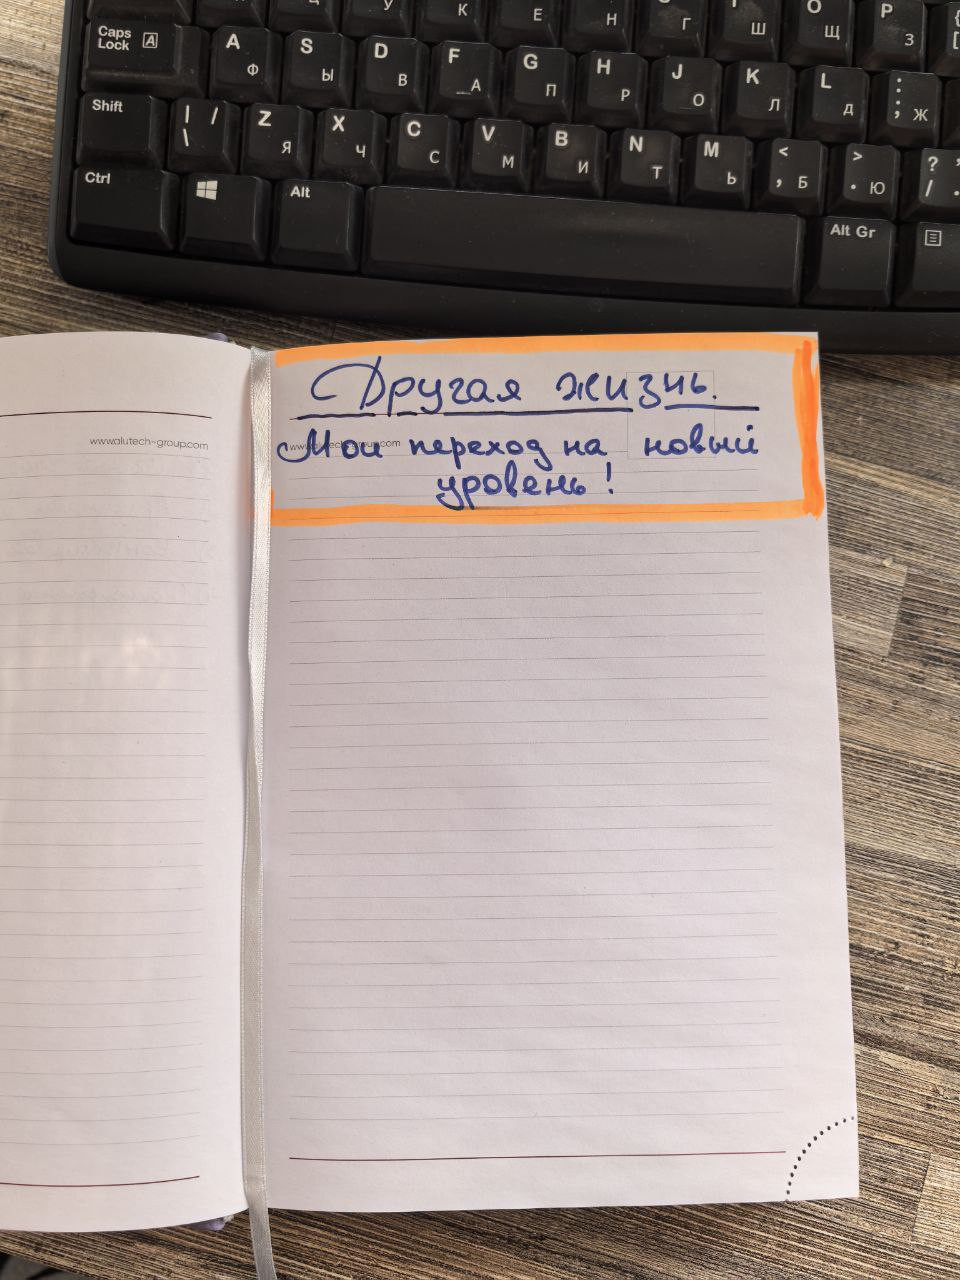 У К Е Н Г Ш Щ О Р З
Caps Lock A A Ф S Ы D В F А G П H Р J О K Л L Д : ; Ж
Shift | / \ Z Я X Ч C С V М B И N Т M Ь < , Б > . Ю ? / .
Ctrl Alt Alt Gr
Другая жизнь.
www.alutech-group.com
www.alutech-group.com
Мой переход на новый
уровень!